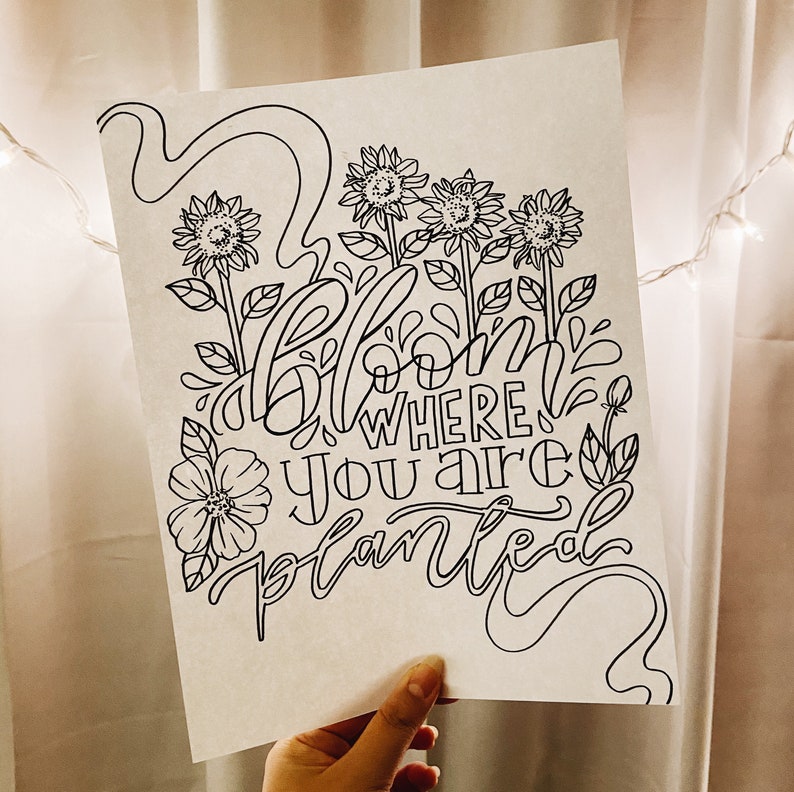 bloom
WHERE
you are
planted